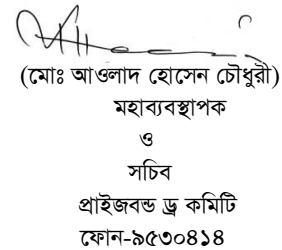 (মোঃ আওলাদ হোসেন চৌধুরী)
মহাব্যবস্থাপক
ও
সচিব
প্রাইজবন্ড ড্র কমিটি
ফোন-৯৫৩০৪১৪